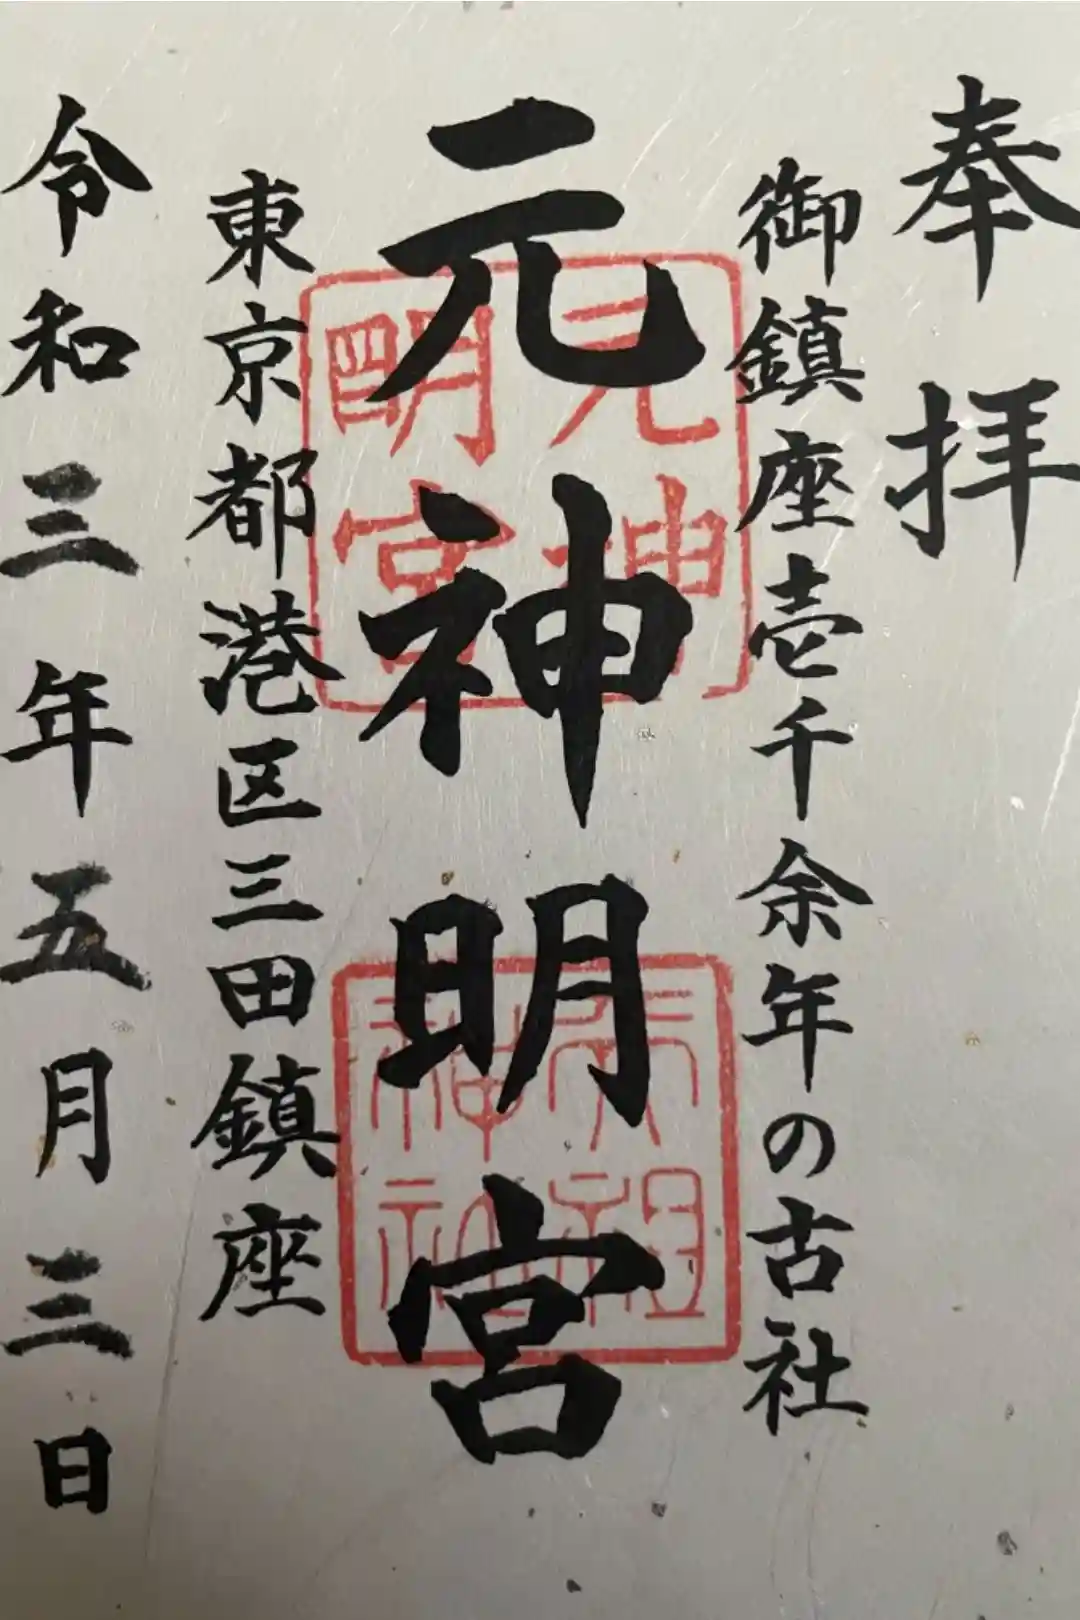 奉拝
御鎮座壱千余年の古社
元神明宮
元神明宮
天祖神社
東京都港区三田鎮座
令和三年五月三日